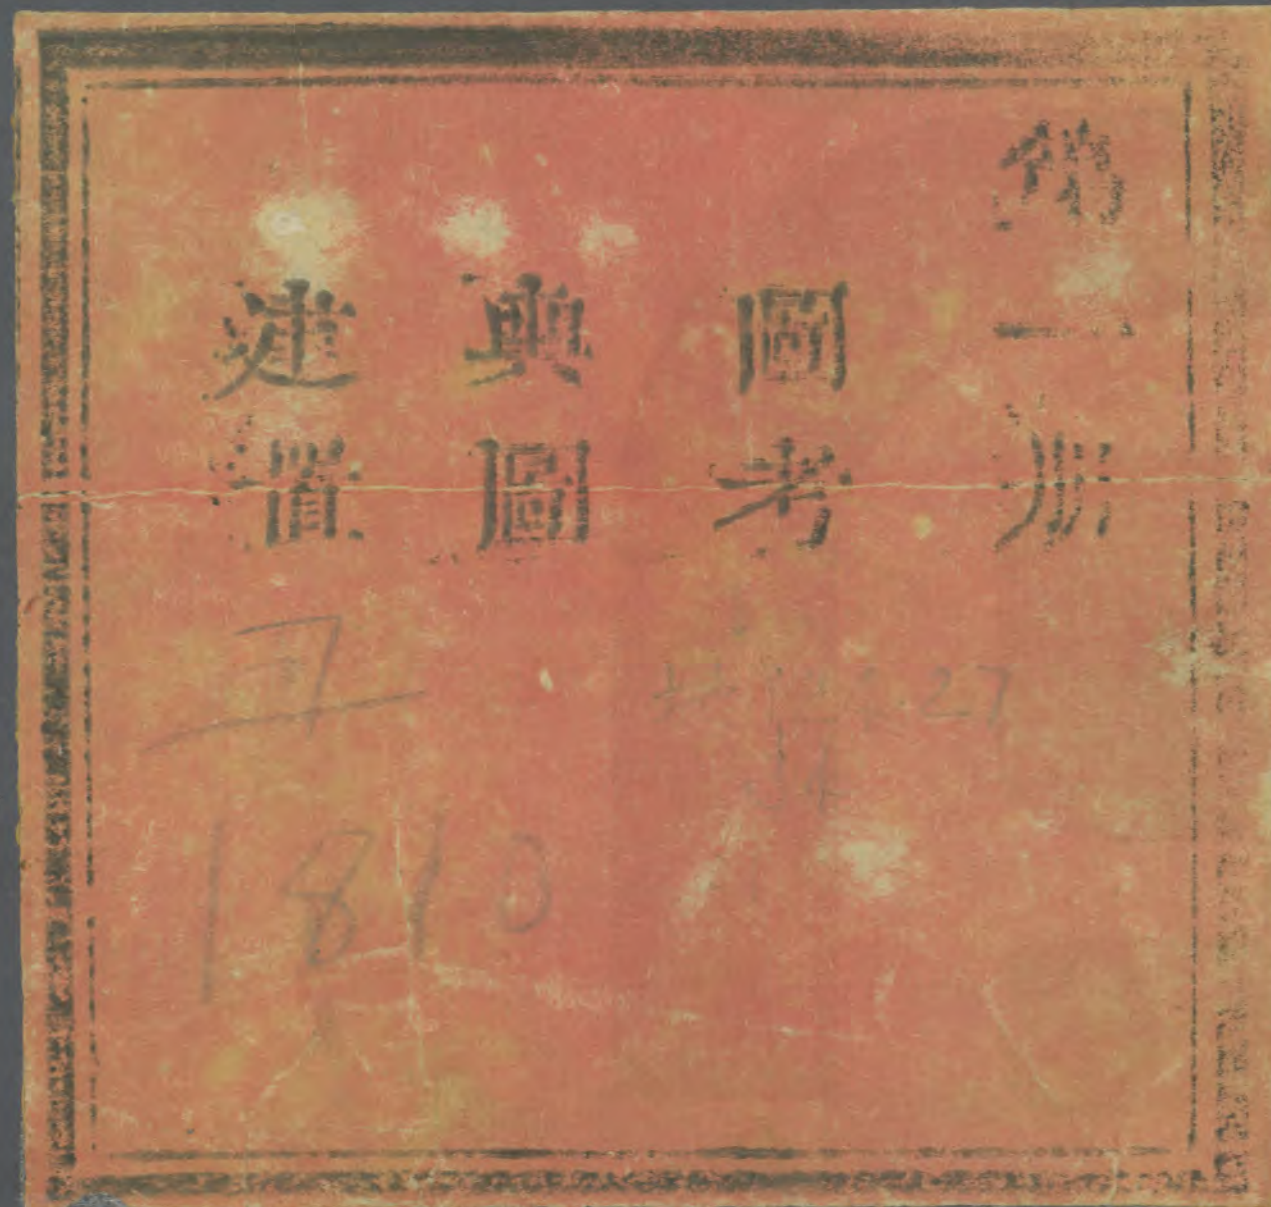 第一册
圖考
輿圖
建置
1810